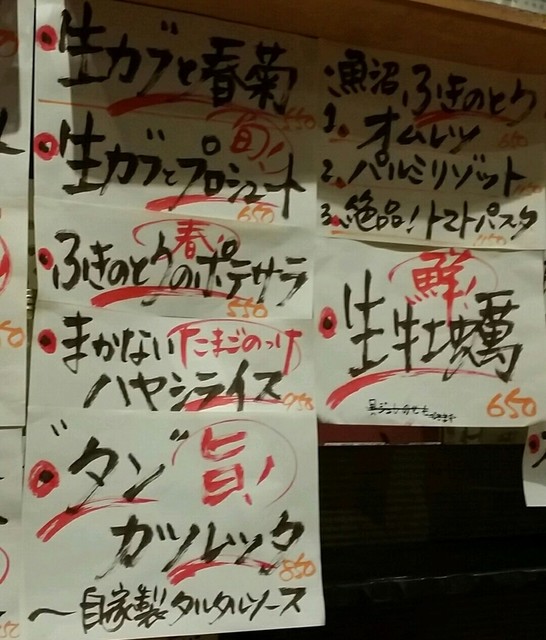 生カブと春菊
550
旬!
生カブとプロシュート
650
春!
ふきのとうのポテサラ
550
まかない たまごのっけ
ハヤシライス
950
旨!
"タン"
カツレツ
850
〜自家製タルタルソース
魚沼 ふきのとう
1. オムレツ
650
2. パルミリゾット
3. 絶品!トマトパスタ
鮮!
生牡蠣
650